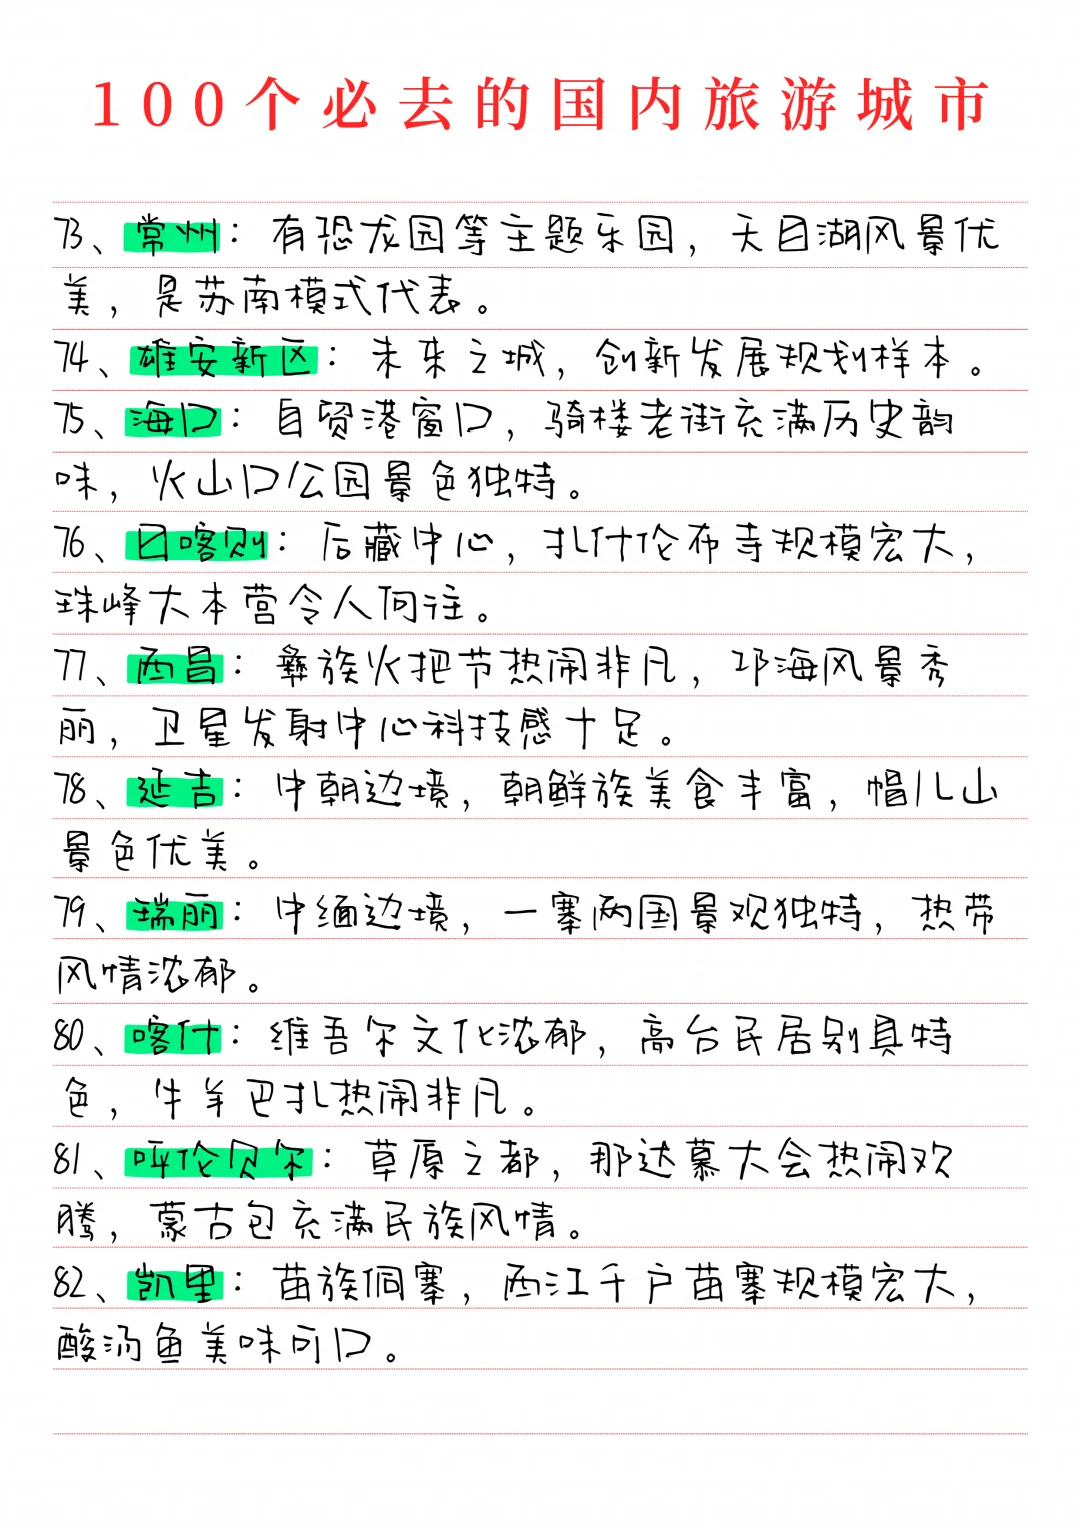 100个必去的国内旅游城市
73、常州：有恐龙园等主题乐园，天目湖风景优
美，是苏南模式代表。
74、雄安新区：未来之城，创新发展规划样本。
75、海口：自贸港窗口，骑楼老街充满历史韵
味，火山口公园景色独特。
76、日喀则：后藏中心，扎什伦布寺规模宏大，
珠峰大本营令人向往。
77、西昌：彝族火把节热闹非凡，邛海风景秀
丽，卫星发射中心科技感十足。
78、延吉：中朝边境，朝鲜族美食丰富，帽儿山
景色优美。
79、瑞丽：中缅边境，一寨两国景观独特，热带
风情浓郁。
80、喀什：维吾尔文化浓郁，高台民居别具特
色，牛羊巴扎热闹非凡。
81、呼伦贝尔：草原之都，那达慕大会热闹欢
腾，蒙古包充满民族风情。
82、凯里：苗族侗寨，西江千户苗寨规模宏大，
酸汤鱼美味可口。